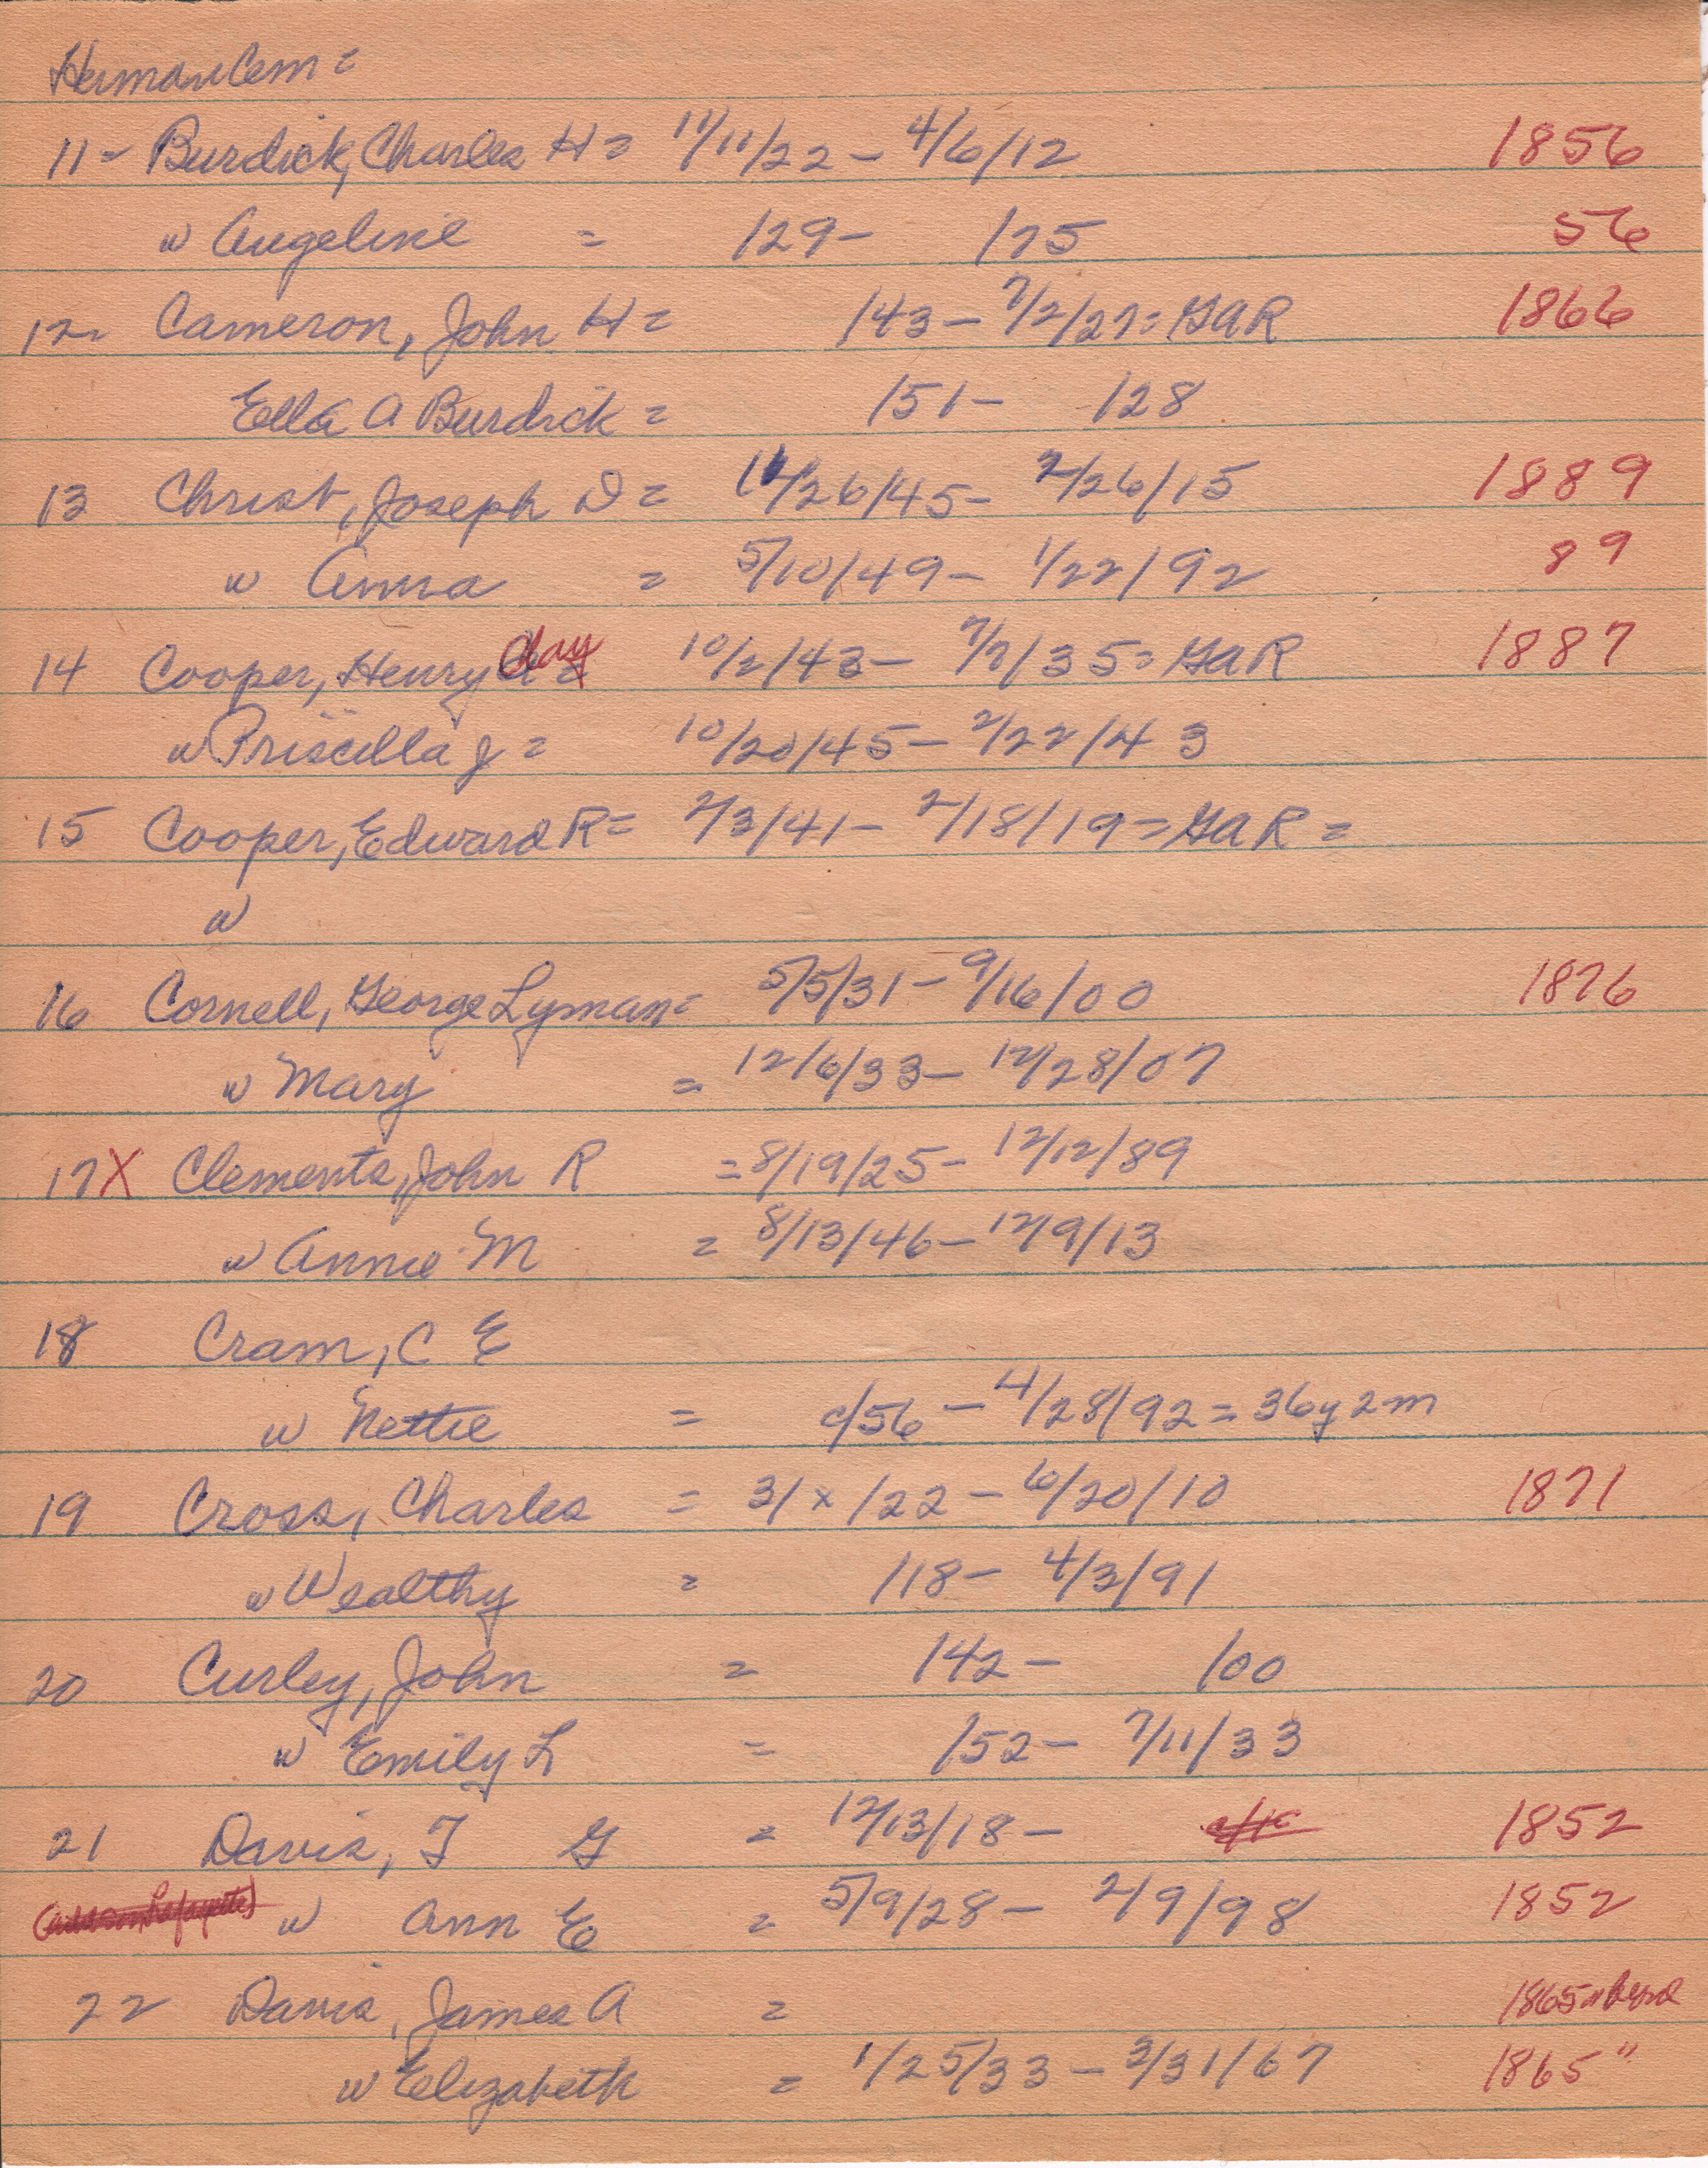 Herman Cem =
11 - Burdick, Charles H = 11/11/22 - 4/6/12 1856
w Angeline = /29 - /75 56
12 - Cameron, John H = /43 - 7/2/27 = GAR 1866
Ella A Burdick = /51 - /28
13 Christ, Joseph D = 11/26/45 - 2/26/15 1889
w Anna = 5/10/49 - 1/22/92 89
14 Cooper, Henry Clay = 10/2/43 - 7/7/35 = GAR 1887
w Priscilla J = 10/20/45 - 2/22/43
15 Cooper, Edward R = 2/3/41 - 2/18/19 = GAR =
w
16 Cornell, George Lyman = 5/5/31 - 9/16/00 1876
w Mary = 12/6/33 - 12/28/07
17 X Clements, John R = 8/19/25 - 12/12/89
w Annie M = 8/13/46 - 12/9/13
18 Cram, C E
w Nettie = c/56 - 4/28/92 = 36y 2m
19 Cross, Charles = 3/x/22 - 6/20/10 1871
w Wealthy = /18 - 4/3/91
20 Curley, John = /42 - /00
w Emily L = /52 - 7/11/33
21 Davis, T G = 12/13/18 - 1852
w Ann E = 5/9/28 - 2/9/98 1852
22 Davis, James A = 1865
w Elizabeth = 1/25/33 - 3/31/67 1865 "